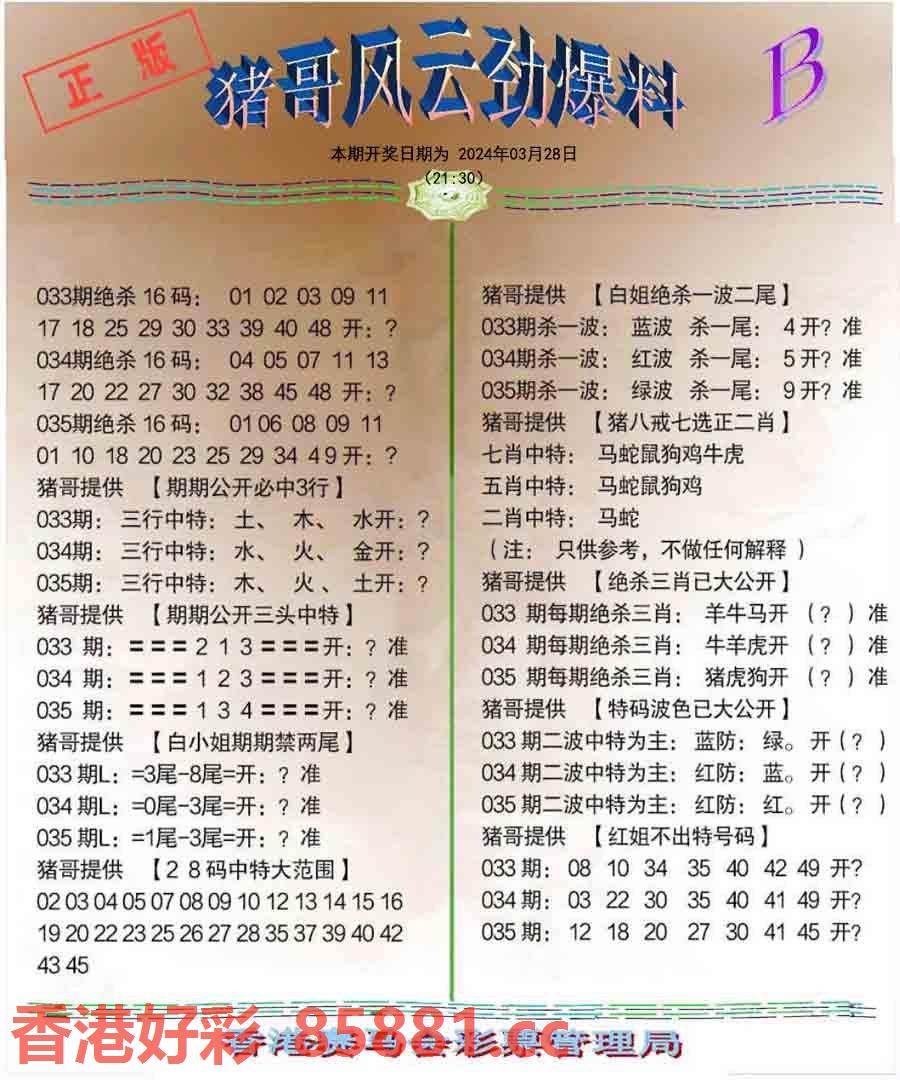 正版
猪哥风云劲爆料
B
本期开奖日期为 2024年03月28日
(21:30)
033期绝杀 16 码： 01 02 03 09 11
17 18 25 29 30 33 39 40 48 开：?
034期绝杀 16 码： 04 05 07 11 13
17 20 22 27 30 32 38 45 48 开：?
035期绝杀 16 码： 01 06 08 09 11
01 10 18 20 23 25 29 34 4 9 开：?
猪哥提供 【期期公开必中3行】
033期： 三行中特： 土、 木、 水开：?
034期： 三行中特： 水、 火、 金开：?
035期： 三行中特： 木、 火、 土开：?
猪哥提供 【期期公开三头中特】
033 期：===2 1 3===开：? 准
034 期：===1 2 3===开：? 准
035 期：===1 3 4===开：? 准
猪哥提供 【白小姐期期禁两尾】
033 期L：=3尾-8尾=开：? 准
034 期L：=0尾-3尾=开：? 准
035 期L：=1尾-3尾=开：? 准
猪哥提供 【2 8 码中特大范围】
02 03 04 05 07 08 09 10 12 13 14 15 16
19 20 22 23 25 26 27 28 35 37 39 40 42
43 45
猪哥提供 【白姐绝杀一波二尾】
033期杀一波： 蓝波 杀一尾： 4 开? 准
034期杀一波： 红波 杀一尾： 5 开? 准
035期杀一波： 绿波 杀一尾： 9 开? 准
猪哥提供 【猪八戒七选正二肖】
七肖中特： 马蛇鼠狗鸡牛虎
五肖中特： 马蛇鼠狗鸡
二肖中特： 马蛇
（注： 只供参考，不做任何解释 ）
猪哥提供 【绝杀三肖已大公开】
033 期每期绝杀三肖： 羊牛马开 （? ）准
034 期每期绝杀三肖： 牛羊虎开 （? ）准
035 期每期绝杀三肖： 猪虎狗开 （? ）准
猪哥提供 【特码波色已大公开】
033 期二波中特为主： 蓝防： 绿。 开（? ）
034 期二波中特为主： 红防： 蓝。 开（? ）
035 期二波中特为主： 红防： 红。 开（? ）
猪哥提供 【红姐不出特号码】
033 期： 08 10 34 35 40 42 49 开?
034 期： 03 22 30 35 40 41 49 开?
035 期： 12 18 20 27 30 41 45 开?
香港好彩 85881.cc
香港赛马会彩票管理局